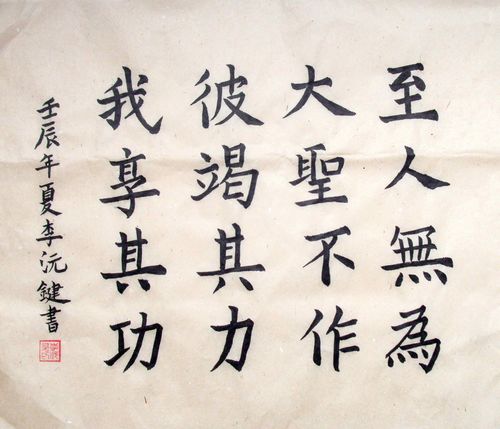 至人無為
大聖不作
彼竭其力
我享其功
壬辰年夏李沅鍵書